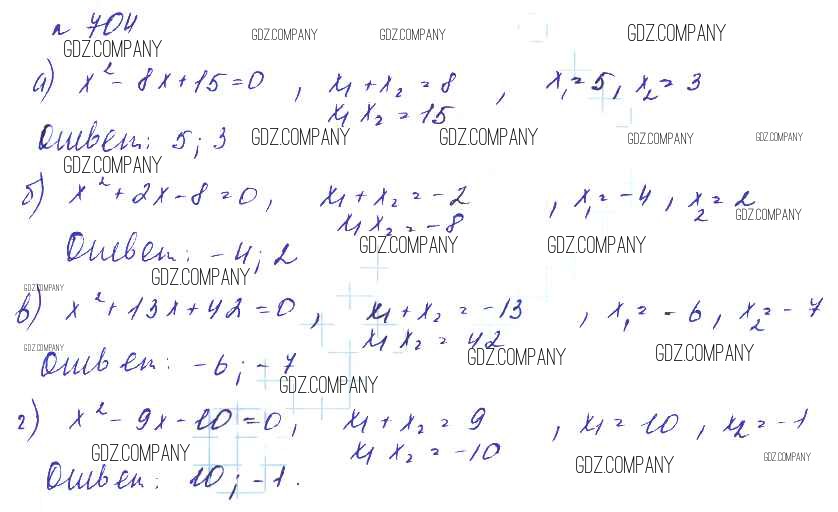 № 704
GDZ.COMPANY GDZ.COMPANY GDZ.COMPANY GDZ.COMPANY
а) x² - 8x + 15 = 0 , x₁ + x₂ = 8 , x₁ = 5, x₂ = 3
x₁ x₂ = 15
Ответ: 5 ; 3 GDZ.COMPANY GDZ.COMPANY GDZ.COMPANY GDZ.COMPANY
GDZ.COMPANY
б) x² + 2x - 8 = 0, x₁ + x₂ = -2 , x₁ = -4 , x₂ = 2
x₁ x₂ = -8 GDZ.COMPANY
Ответ: -4; 2 GDZ.COMPANY GDZ.COMPANY
GDZ.COMPANY
GDZ.COMPANY
в) x² + 13x + 42 = 0 , x₁ + x₂ = -13 , x₁ = -6, x₂ = -7
x₁ x₂ = 42
GDZ.COMPANY GDZ.COMPANY GDZ.COMPANY
Ответ: -6; -7
GDZ.COMPANY
г) x² - 9x - 10 = 0, x₁ + x₂ = 9 , x₁ = 10 , x₂ = -1
x₁ x₂ = -10
GDZ.COMPANY GDZ.COMPANY GDZ.COMPANY
Ответ: 10 ; -1.